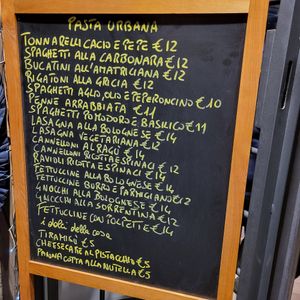 PASTA URBANA
TONNARELLI CACIO E PEPE €12
SPAGHETTI ALLA CARBONARA €12
BUCATINI ALL'AMATRICIANA €12
RIGATONI ALLA GRICIA €12
SPAGHETTI AGLIO, OLIO E PEPERONCINO €10
PENNE ARRABBIATA €11
SPAGHETTI POMODORO E BASILICO €11
LASAGNA ALLA BOLOGNESE €14
LASAGNA VEGETARIANA €12
CANNELLONI AL RAGÙ €14
CANNELLONI RICOTTA E SPINACI €12
RAVIOLI RICOTTA E SPINACI €12
FETTUCCINE ALLA BOLOGNESE €14
FETTUCCINE BURRO E PARMIGIANO €12
GNOCCHI ALLA BOLOGNESE €14
GNOCCHI ALLA SORRENTINA €12
FETTUCCINE CON POLPETTE €14
i dolci della casa
TIRAMISÙ €5
CHEESECAKE AL PISTACCHIO €5
PANNA COTTA ALLA NUTELLA €5